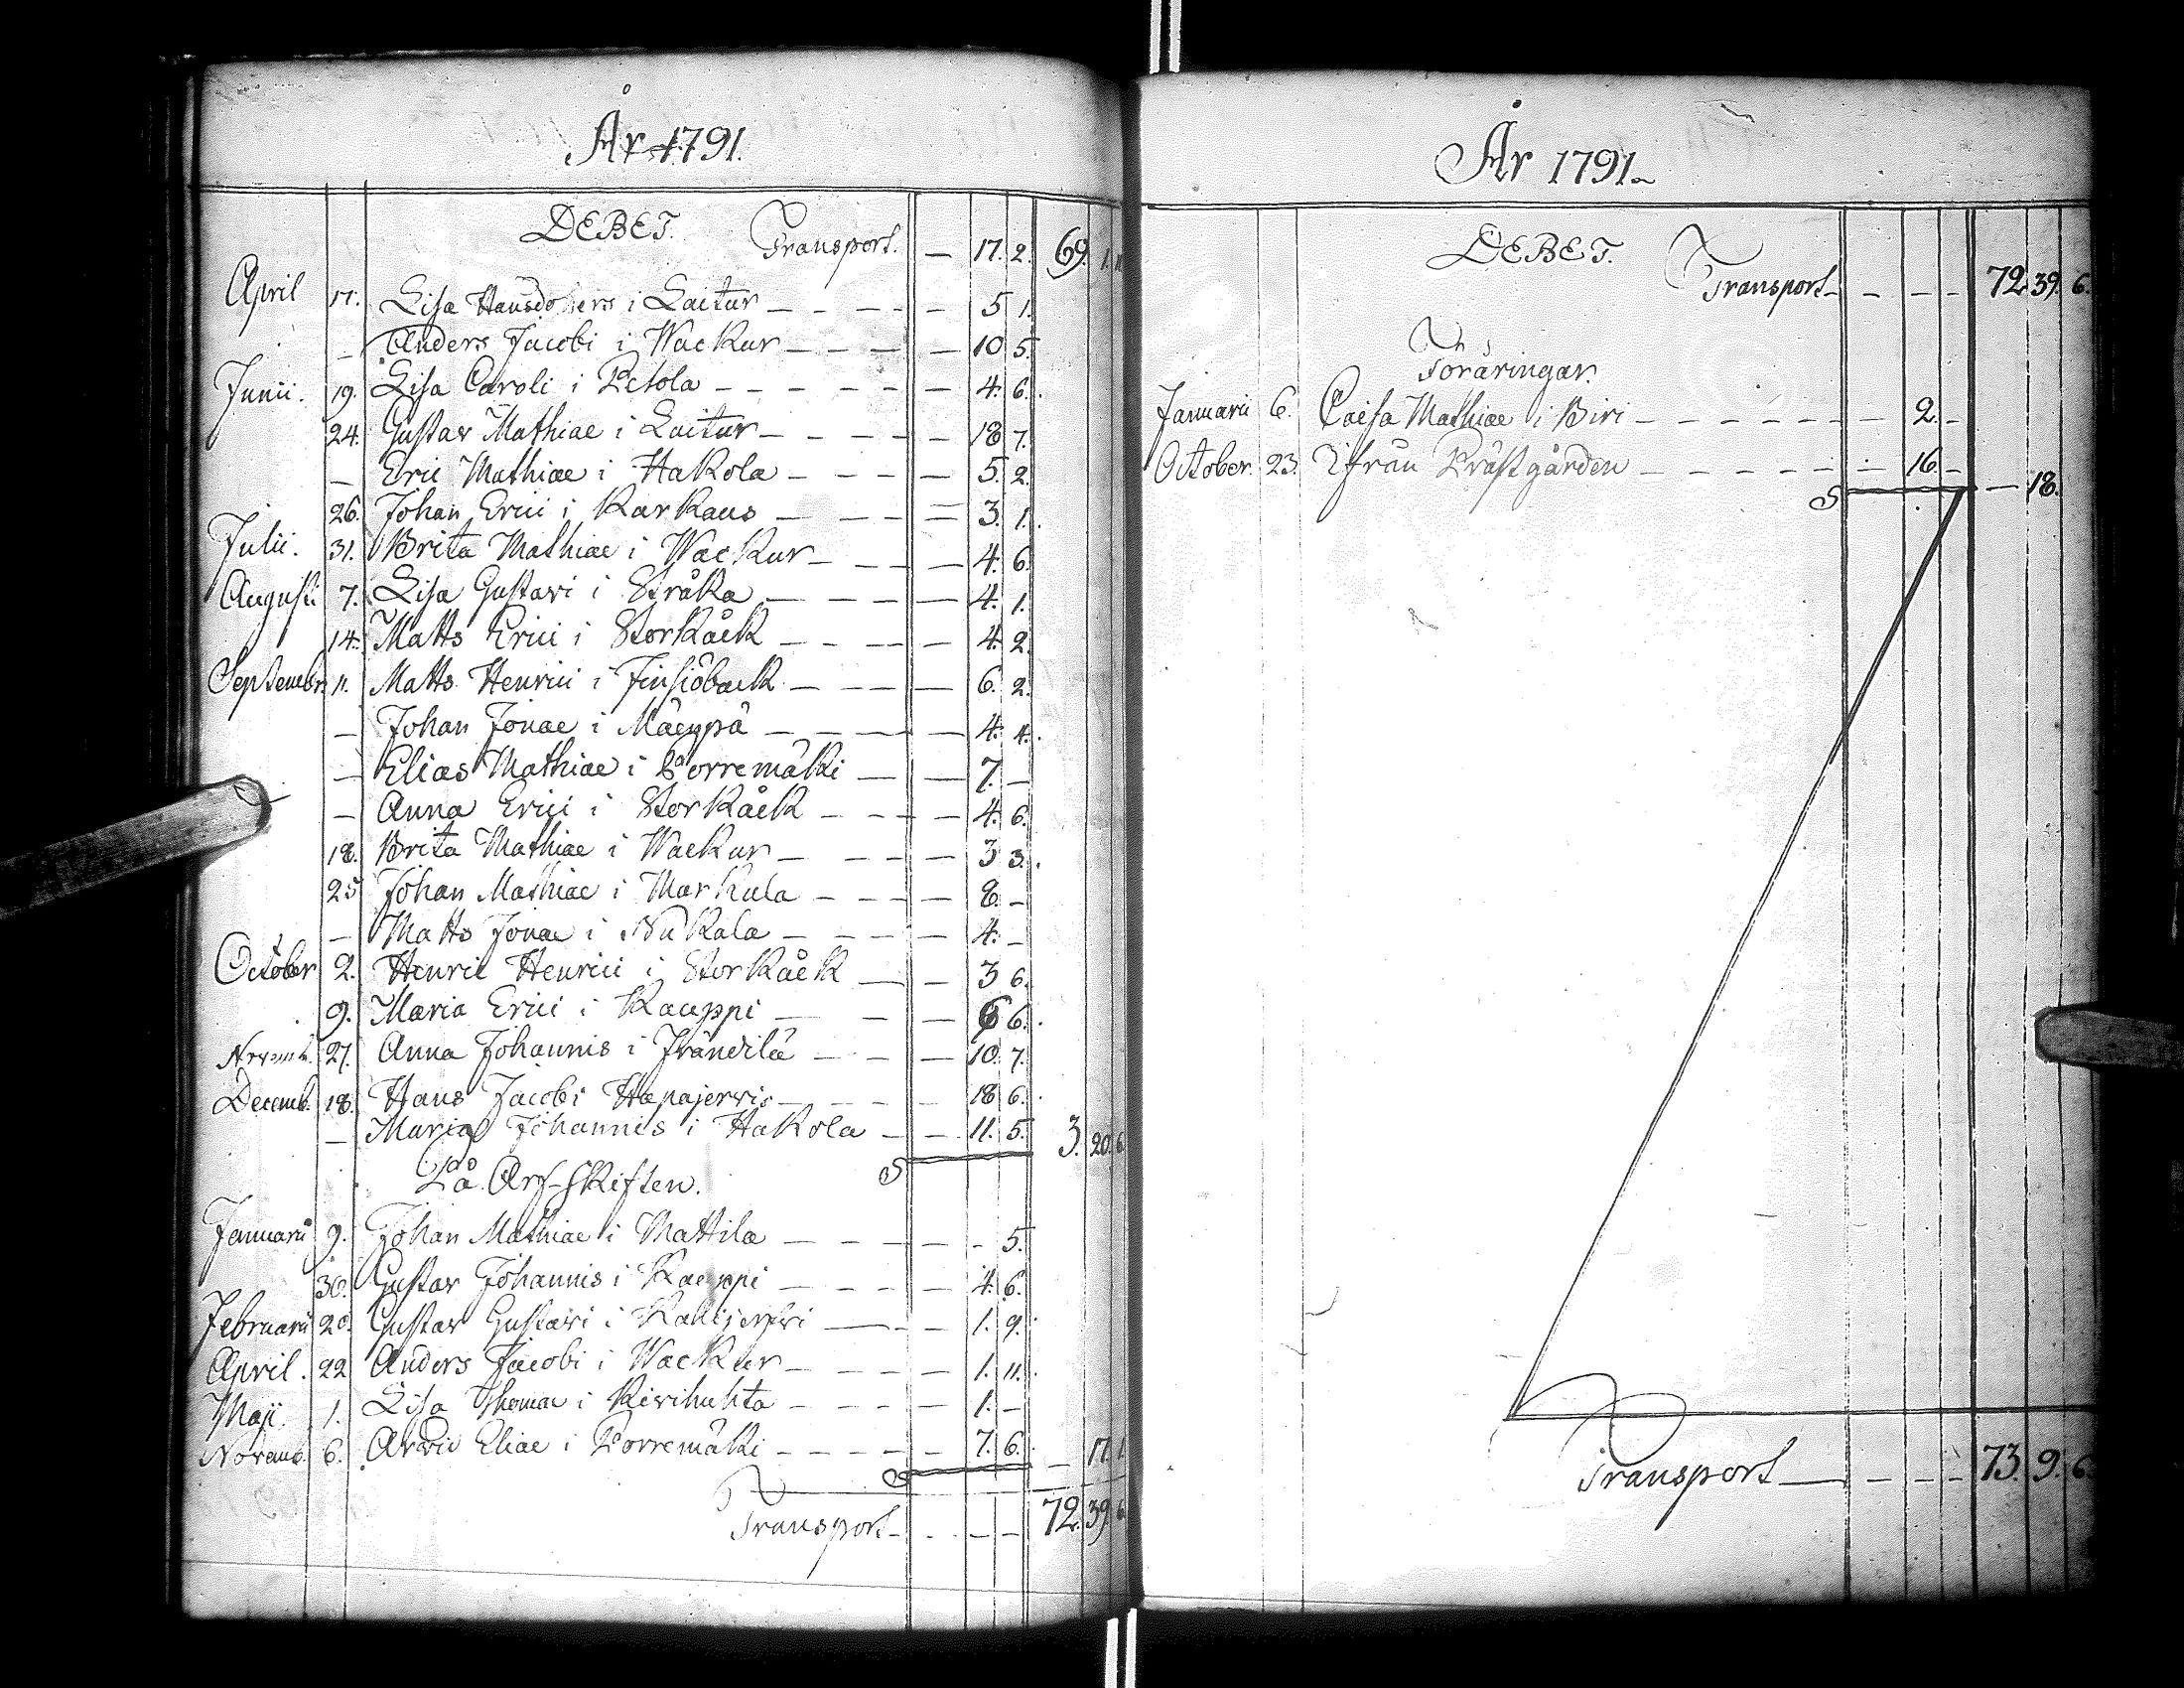 År 1791.
DEBET.
Transport. — 17. 2. 69. 1.
April 17. Lisa Hansdotters i Laitur — 5 1.
— Anders Jacobi i Wackur — 10 5.
Junii. 19. Lisa Caroli i Petola — 4. 6.
24. Gustav Mathiae i Laitur — 18 7.
— Eric Mathiae i Hakola — 5. 2.
26. Johan Erici i Karkaus — 3. 1.
Julii. 31. Brita Mathiae i Wackur — 4. 6.
Augusti 7. Lisa Gustavi i Stråka — 4. 1.
14. Matts Erici i Storkåck — 4. 2.
Septembr. 11. Matts Henrici i Finsiöback — 6. 2.
— Johan Jonae i Mäenpä — 4. 4.
— Elias Mathiae i Porremäki — 7. —
— Anna Erici i Storkåck — 4. 6.
18. Brita Mathiae i Wackur — 3 3.
25 Johan Mathiae i Markula — 8. —
— Matts Jonae i Nukala — 4. —
October 2. Henric Henrici i Storkåck — 3 6.
9. Maria Erici i Kauppi — 6 6.
Novemb. 27. Anna Johannis i Frändilä — 10. 7.
Decemb. 18. Hans Jacobi Hapajerwis — 18 6.
— Maria Johannis i Hakola — 11. 5. 3. 20. 6
På Arf-skiften. S
Januarii 9. Johan Mathiae i Mattila — - 5.
30. Gustav Johannis i Kauppi — 4. 6.
Februarii 20. Gustav Gustavi i — 1. 9.
April. 22 Anders Jacobi i Wackur — 1. 11.
Maji. 1. Lisa Thomae i Kivihuhta — 1. —
Novemb. 6. Arvid Eliae i Porremäki — 7. 6. — 17. 1.
S
Transport — 72. 39 6
År 1791.
DEBET.
Transport — 72. 39. 6.
Föräringar.
Januarii 6. Caisa Mathiae i Biri — 2. -
October. 23. Ifrån Prästgården — 16. -
S — 18.
Transport — 73. 9. 6